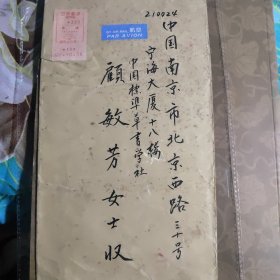 210024
中国南京市北京西路三十号
宁海大厦十八楼
中国標準草書学社
顧敏芳女士收
航空
PAR AVION